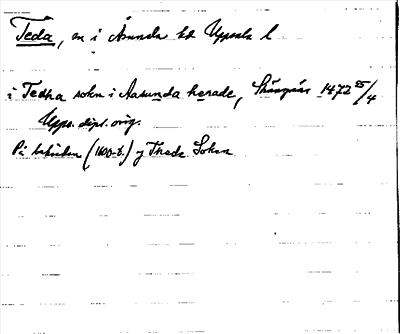 Teda, sn i Åsunda hd Uppsala l
i Tedha sokn i Aasunda herade, Skängnäs 1472 25/4
Upps. dipl. orig.
På baksidan (1600-t.) y Theda Sokn